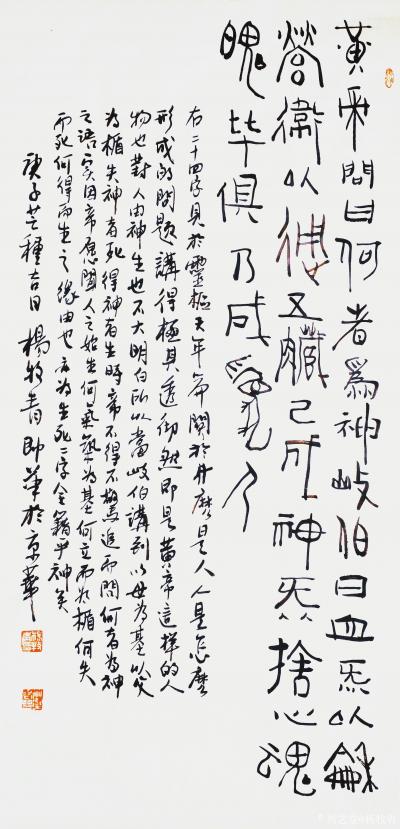 黄帝問曰何者爲神岐伯曰血炁以龢
營衛以通五臟已成神炁捨心魂
魄毕俱乃成爲人
右二十四字見於靈樞天年篇關於什麽是人人是怎麽
形成的問題講得極其透彻然即是黄帝這樣的人
物也對人由神生也不大明白所以當岐伯講到以母為基以父
為楯失神者死得神者生時帝不得不驚追而問何者為神
之語实因帝愿聞人之始生何氣築為基何立而為楯何失
而死何得而生之缘由也言為生死二字全籍乎神矣
庚子芒種吉日楊牧青即草於京華